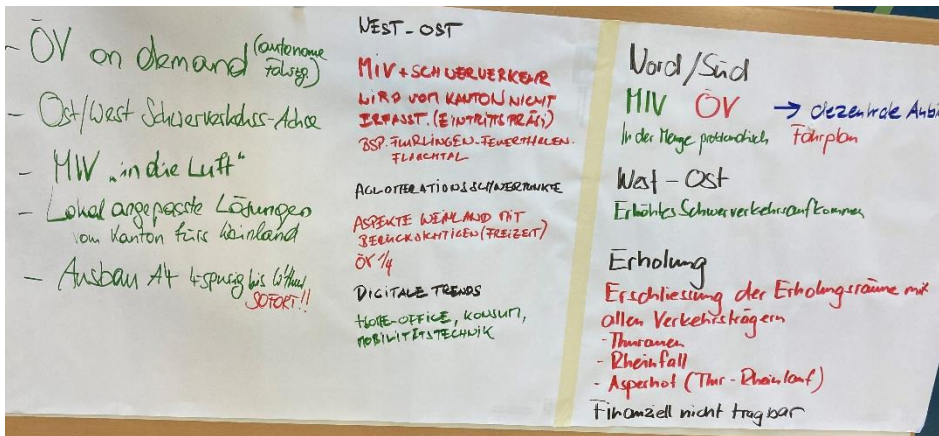 - ÖV on demand (autonome
Fahrzg)
- Ost/West Schwerverkehrs-Achse
- MIV "in die Luft"
- Lokal angepasste Lösungen
vom Kanton fürs Weinland
- Ausbau A4 4-spurig bis W'thur
SOFORT!!
WEST-OST
MIV + SCHWERVERKEHR
WIRD VOM KANTON NICHT
ERFASST. (EINTRITTSPRÄSI)
BSP. FLURLINGEN-FEUERTHALEN-
FLAACHTAL
AGLOMERATIONSSCHWERPUNKTE
ASPEKTE WEINLAND MIT
BERÜCKSICHTIGEN (FREIZEIT)
ÖV 1/4
DIGITALE TRENDS
HOME-OFFICE, KONSUM,
MOBILITÄTSTECHNIK
Nord/Süd
MIV ÖV → dezentrale Anbi
In der Menge problematisch Fahrplan
West-Ost
Erhöhtes Schwerverkehrsaufkommen
Erholung
Erschliessung der Erholungsräume mit
allen Verkehrsträgern
- Thurauen
- Rheinfall
- Asperhof (Thur-Rheinlauf)
Finanziell nicht tragbar